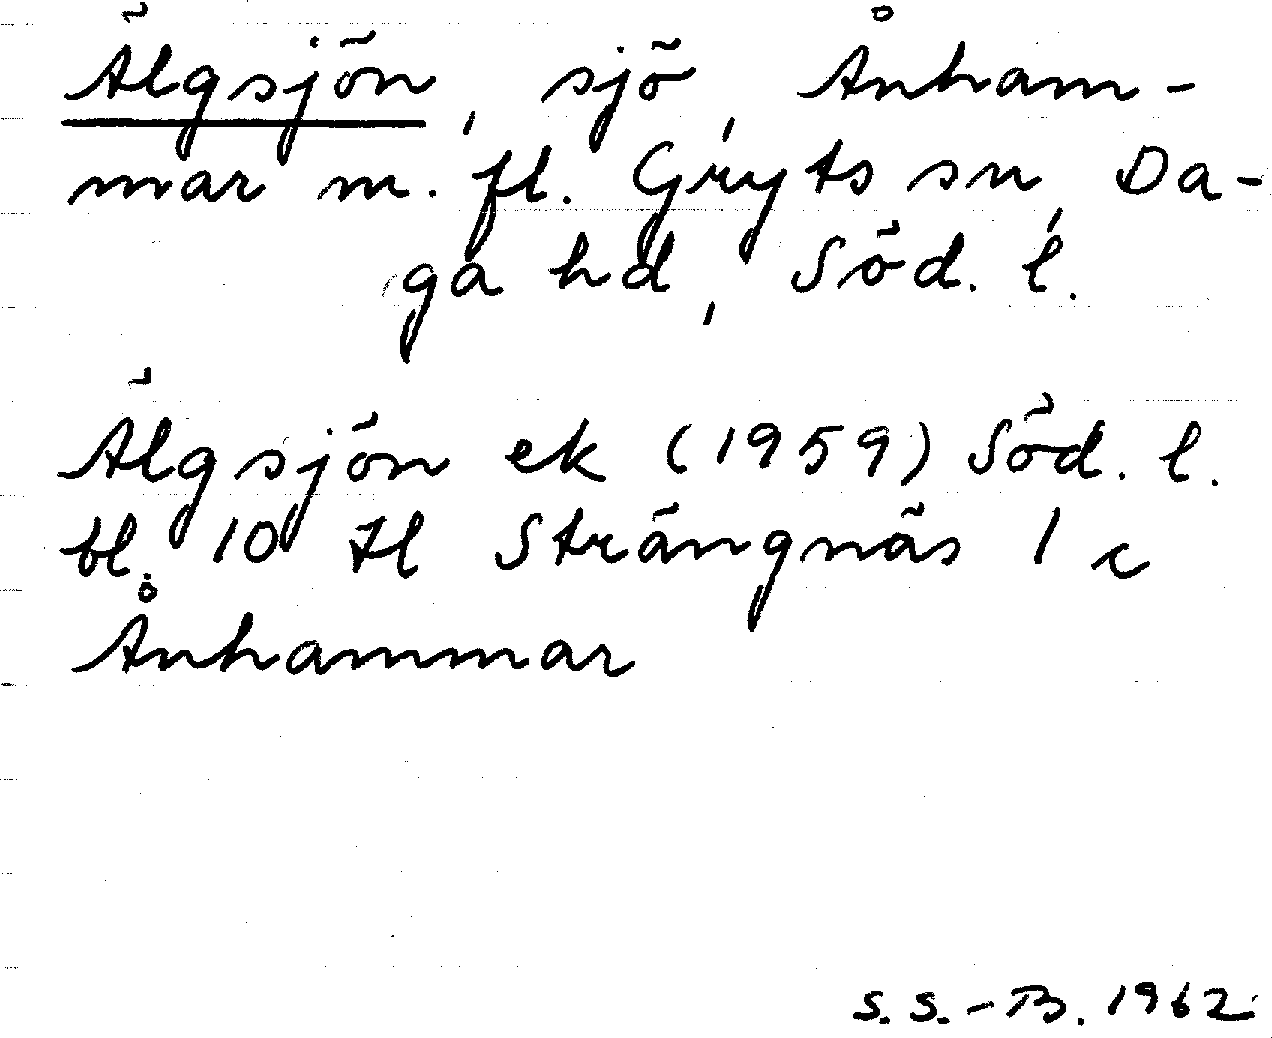 Älgsjön, sjö, Ånham-
mar m. fl. Gryts sn, Da-
ga hd, Söd. l.
Älgsjön ek (1959) Söd. l.
bl. 10 tl Strängnäs 1 c
Ånhammar
S. S.-B. 1962